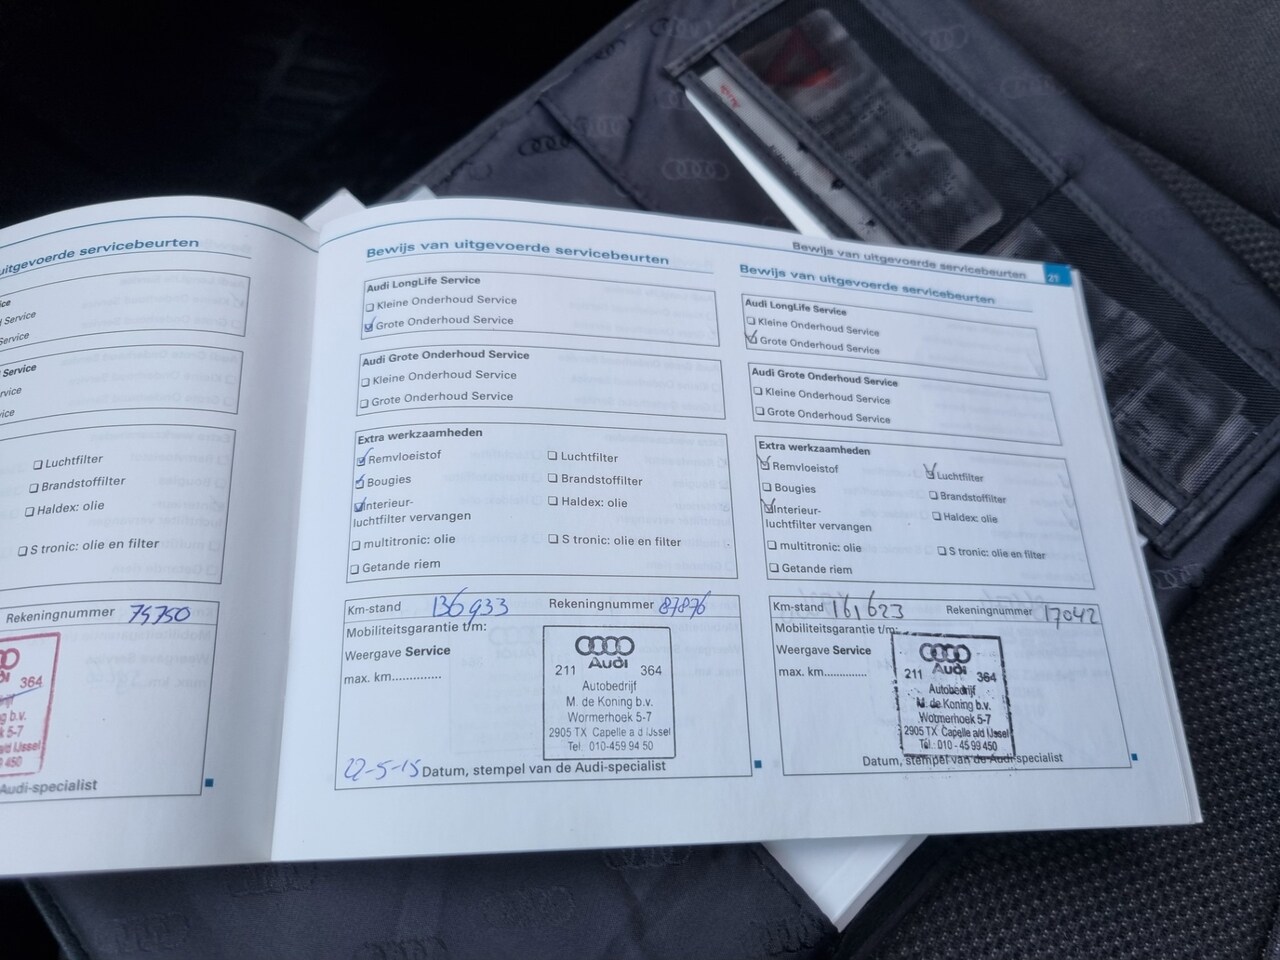 uitgevoerde servicebeurten
Service
Service
Service
Luchtfilter
Brandstoffilter
Haldex: olie
S tronic: olie en filter
Rekeningnummer 75750
364
b.v.
5-7
a/d IJssel
450
Audi-specialist
Bewijs van uitgevoerde servicebeurten
Audi LongLife Service
Kleine Onderhoud Service
Grote Onderhoud Service
Audi Grote Onderhoud Service
Kleine Onderhoud Service
Grote Onderhoud Service
Extra werkzaamheden
Remvloeistof
Luchtfilter
Bougies
Brandstoffilter
Interieur-
luchtfilter vervangen
Haldex: olie
multitronic: olie
S tronic: olie en filter
Getande riem
Km-stand 136933 Rekeningnummer 87876
Mobiliteitsgarantie t/m:
Weergave Service
max. km..............
Audi
211 364
Autobedrijf
M. de Koning b.v.
Wormerhoek 5-7
2905 TX Capelle a d IJssel
Tel. 010-459 94 50
22-5-15 Datum, stempel van de Audi-specialist
Bewijs van uitgevoerde servicebeurten 21
Bewijs van uitgevoerde servicebeurten
Audi LongLife Service
Kleine Onderhoud Service
Grote Onderhoud Service
Audi Grote Onderhoud Service
Kleine Onderhoud Service
Grote Onderhoud Service
Extra werkzaamheden
Remvloeistof
Luchtfilter
Bougies
Brandstoffilter
Interieur-
luchtfilter vervangen
Haldex: olie
multitronic: olie
S tronic: olie en filter
Getande riem
Km-stand 161623 Rekeningnummer 17042
Mobiliteitsgarantie t/m:
Weergave Service
max. km..............
Audi
211 364
Autobedrijf
M. de Koning b.v.
Wormerhoek 5-7
2905 TX Capelle a/d IJssel
Tel.: 010 - 45 99 450
Datum, stempel van de Audi-specialist